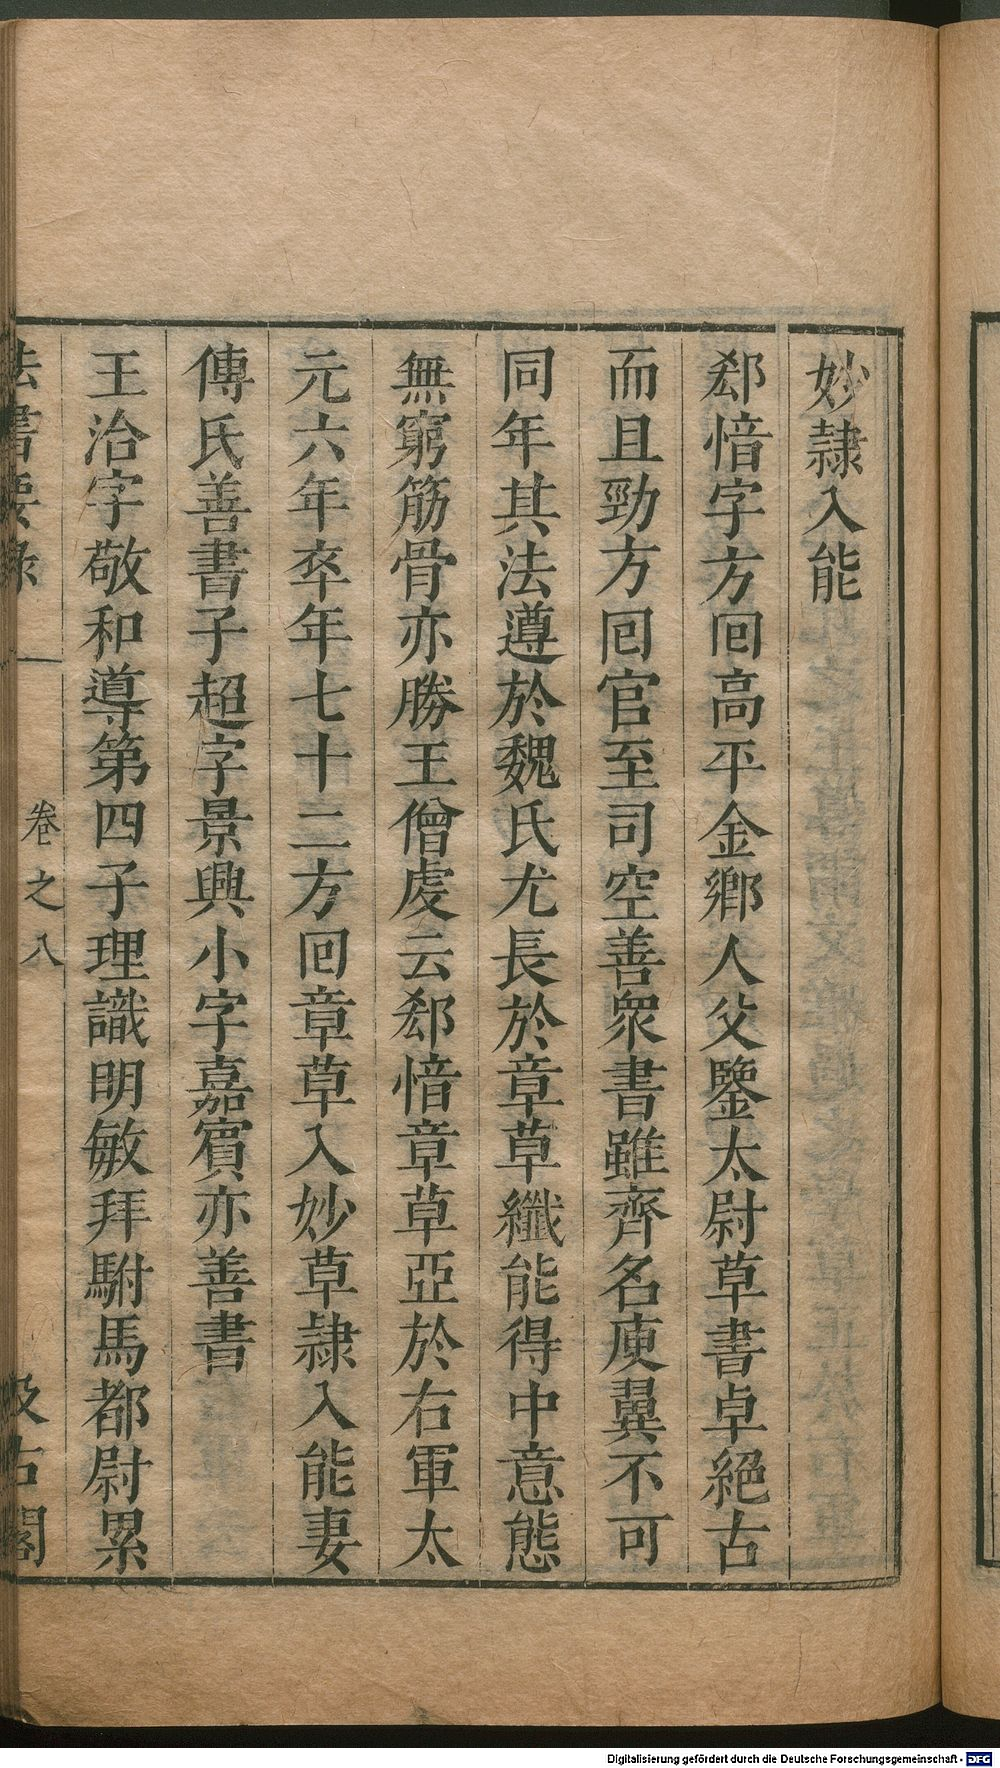 妙隷入能
郄愔字方回高平金鄉人父鑒太尉草書卓絕古
而且勁方回官至司空善衆書雖齊名庾翼不可
同年其法遵於魏氏尤長於章草纖能得中意態
無窮筋骨亦勝王僧虔云郄愔章草亞於右軍太
元六年卒年七十二方回章草入妙草隷入能妻
傅氏善書子超字景興小字嘉賓亦善書
王洽字敬和導第四子理識明敏拜駙馬都尉累
法書要錄 卷之八 汲古閣
Digitalisierung gefördert durch die Deutsche Forschungsgemeinschaft - DFG